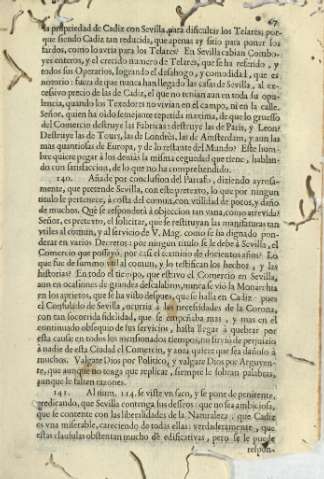 67
la propiedad de Cadiz con Sevilla, para dificultar los Telares; por-
que siendo Cadiz tan reducida, que apenas ay sitio para poner los
fardos, como lo avria para los Telares? En Sevilla cabian Combo-
yes enteros, y el crecido numero de Telares, que se ha referido, y
todos sus Operarios, logrando el desahogo, y comodidad, que es
notorio: fuera de que nunca han llegado las casas de Sevilla, al ex-
cessivo precio de las de Cadiz, el que no tenian aun en toda su opu-
lencia, quando los Texedores no vivian en el campo, ni en la calle.
Señor, quien ha oìdo semejante repetida maxima, de que lo gruesso
del Comercio destruye las Fabricas? destruye las de Paris, y Leon?
Destruye las de Tours, las de Londres, las de Amsterdam, y aun las
mas quantiosas de Europa, y de lo restante del Mundo? Este hom-
bre quiere pegar à los demàs la misma ceguedad que tiene, hablan-
do con satisfaccion, de lo que no ha comprehendido.
140. Añade por conclusion del Parrafo, diziendo ayrosa-
mente, que pretende Sevilla, con este pretexto, lo que por ningun
titulo le pertenece, à costa del comun, con vtilidad de pocos, y daño
de muchos. Què se responderà à objeccion tan vana, como atrevida?
Señor, es pretexto, el solicitar, que se restituyan las manifaturas tan
vtiles al comun, y al servicio de V. Mag. como se ha dignado pon-
derar en varios Decretos? por ningun titulo se le debe à Sevilla, el
Comercio que posseyò, por casi el camino de docientos años? Lo
que fue de summo vtil al comun, y lo testifican los hechos, y las
historias? En todo el tiempo, que estuvo el Comercio en Sevilla,
aun en ocasiones de grandes descalabros, nunca se viò la Monarchia
en los aprietos, que se ha visto despues, que se halla en Cadiz: pues
el Consulado de Sevilla, ocurria à las necessidades de la Corona,
con tan socorrida fidelidad, que se empeñaba mas, y mas en el
continuado obsequio de sus servicios, hasta llegar à quebrar por
esta causa en todos los mencionados tiempos, no sirve de perjuizio
à nadie de esta Ciudad el Comercio, y aora quiere que sea dañoso à
muchos. Valgate Dios por Politico, y valgate Dios por Arguyen-
te, que aunque no tenga que replicar, siempre le sobran palabras,
aunque le falten razones.
141. Al num. 124. se viste vn saco, y se pone de penitente,
predicando, que Sevilla contenga sus desseos: que no sea ambiciosa,
que se contente con las liberalidades de la Naturaleza: que Cadiz
es vna miserable, careciendo de todas ellas: verdaderamente, que
estas clausulas obstentan mucho de edificativas, pero se le puede
respon-